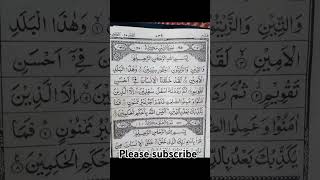 بِسْمِ اللهِ الرَّحْمٰنِ الرَّحِيْمِ
وَالتِّيْنِ وَالزَّيْتُوْنِ ۙ وَطُوْرِ سِيْنِيْنَ ۙ وَهٰذَا الْبَلَدِ
الْاَمِيْنِ ۙ لَقَدْ خَلَقْنَا الْاِنْسَانَ فِيْٓ اَحْسَنِ
تَقْوِيْمٍ ۙ ثُمَّ رَدَدْنٰهُ اَسْفَلَ سٰفِلِيْنَ ۙ اِلَّا الَّذِيْنَ
اٰمَنُوْا وَعَمِلُوا الصّٰلِحٰتِ فَلَهُمْ اَجْرٌ غَيْرُ مَمْنُوْنٍ ۙ فَمَا
يُكَذِّبُكَ بَعْدُ بِالدِّيْنِ ۙ اَلَيْسَ اللهُ بِاَحْكَمِ الْحٰكِمِيْنَ
بِسْمِ اللهِ الرَّحْمٰنِ الرَّحِيْمِ
Please subscribe